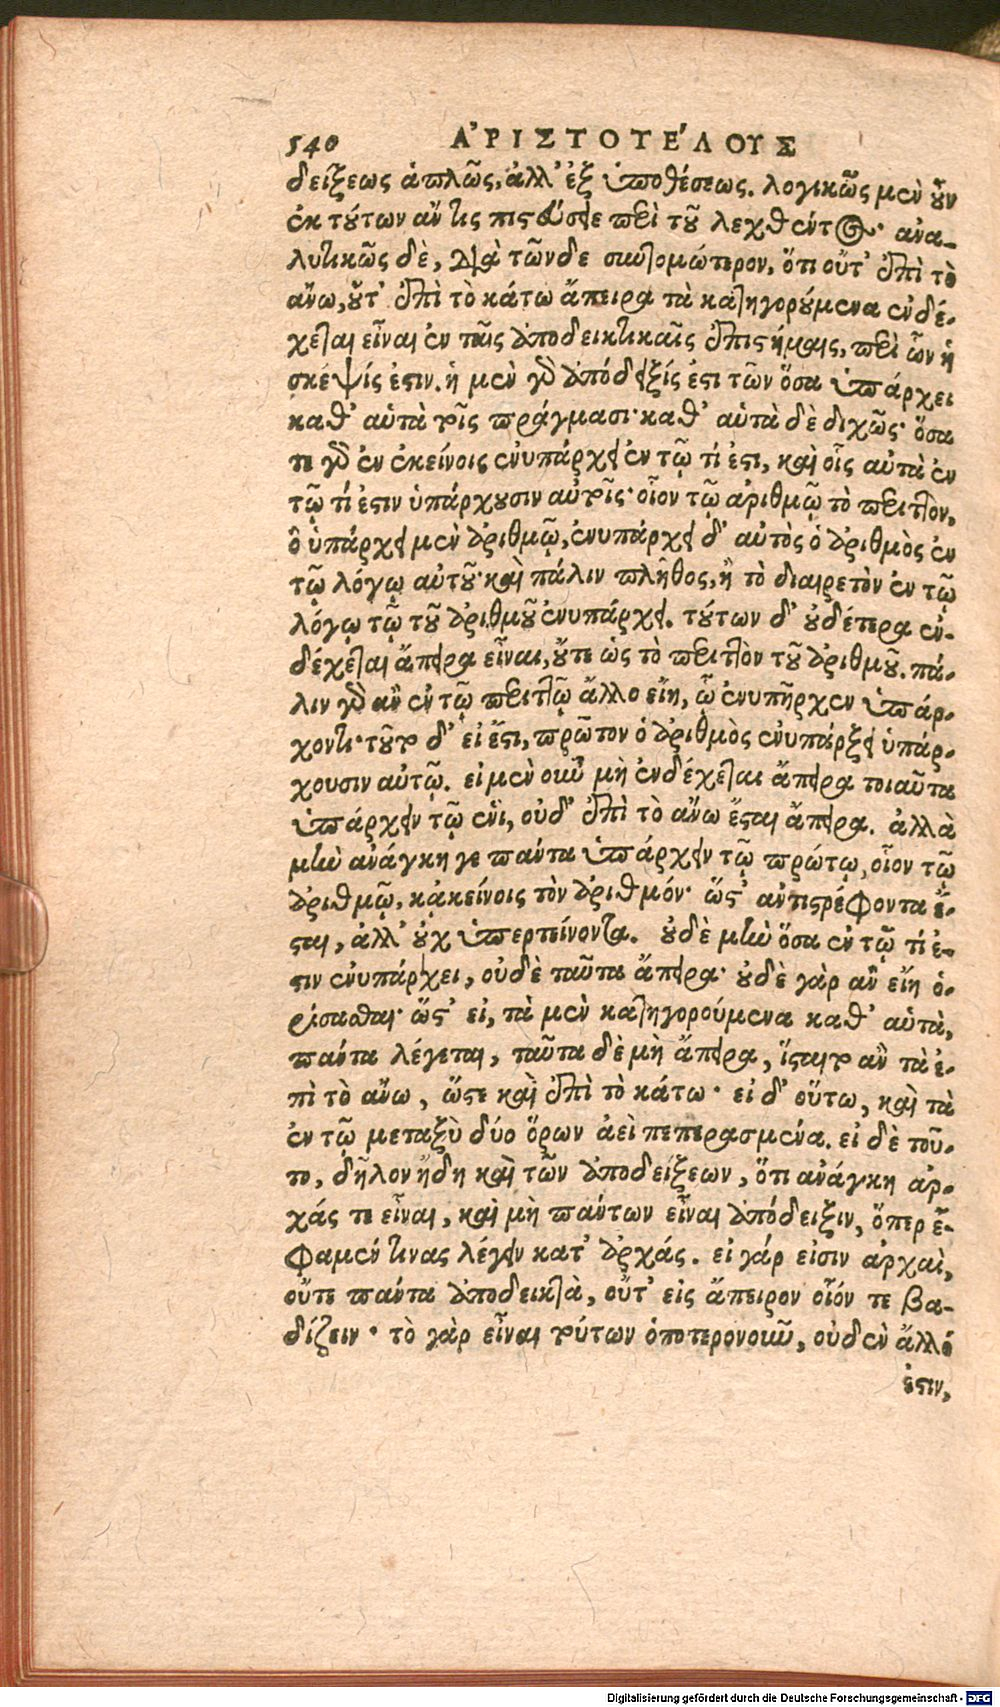 540 ἈΡΙΣΤΟΤΕΛΟΥΣ
δείξεως ἁπλῶς, ἀλλ' ἐξ ὑποθέσεως. λογικῶς μὲν οὖν
ἐκ τούτων ἄν τις πιστεύσειε περὶ τοῦ λεχθέντος· ἀνα-
λυτικῶς δὲ, διὰ τῶνδε συντομώτερον, ὅτι οὔτ' ἐπὶ τὸ
ἄνω, οὔτ' ἐπὶ τὸ κάτω ἄπειρα τὰ κατηγορούμενα ἐνδέ-
χεται εἶναι ἐν ταῖς ἀποδεικτικαῖς ἐπιστήμαις, περὶ ὧν ἡ
σκέψίς ἐστιν. ἡ μὲν γὰρ ἀπόδειξίς ἐστι τῶν ὅσα ὑπάρχει
καθ' αὑτὰ τοῖς πράγμασι· καθ' αὑτὰ δὲ διχῶς· ὅσα
τε γὰρ ἐν ἐκείνοις ἐνυπάρχει ἐν τῷ τί ἐστι, καὶ οἷς αὐτὰ ἐν
τῷ τί ἐστιν ὑπάρχουσιν αὐτοῖς· οἷον τῷ ἀριθμῷ τὸ περιττὸν,
ὃ ὑπάρχει μὲν ἀριθμῷ, ἐνυπάρχει δ' αὐτὸς ὁ ἀριθμὸς ἐν
τῷ λόγῳ αὐτοῦ· καὶ πάλιν πλῆθος, ἢ τὸ διαιρετὸν ἐν τῷ
λόγῳ τῷ τοῦ ἀριθμοῦ ἐνυπάρχει. τούτων δ' οὐδέτερα ἐν-
δέχεται ἄπειρα εἶναι, οὔτε ὡς τὸ περιττὸν τοῦ ἀριθμοῦ. πά-
λιν γὰρ ἂν ἐν τῷ περιττῷ ἄλλο εἴη, ᾧ ἐνυπῆρχεν ὑπάρ-
χοντι· τοῦτο δ' εἰ ἔστι, πρῶτον ὁ ἀριθμὸς ἐνυπάρξει ὑπάρ-
χουσιν αὐτῷ. εἰ μὲν οὖν μὴ ἐνδέχεται ἄπειρα τοιαῦτα
ὑπάρχειν τῷ ἑνὶ, οὐδ' ἐπὶ τὸ ἄνω ἔσται ἄπειρα. ἀλλὰ
μὴν ἀνάγκη γε πάντα ὑπάρχειν τῷ πρώτῳ, οἷον τῷ
ἀριθμῷ, κἀκείνοις τὸν ἀριθμόν· ὥστ' ἀντιστρέφοντα ἔ-
σται, ἀλλ' οὐχ ὑπερτείνοντα. οὐδὲ μὴν ὅσα ἐν τῷ τί ἐ-
στιν ἐνυπάρχει, οὐδὲ ταῦτα ἄπειρα· οὐδὲ γὰρ ἂν εἴη ὁ-
ρίσασθαι· ὥστ' εἰ, τὰ μὲν κατηγορούμενα καθ' αὑτὰ,
πάντα λέγεται, ταῦτα δὲ μὴ ἄπειρα, ἵσταιτο ἂν τὰ ἐ-
πὶ τὸ ἄνω, ὥστε καὶ ἐπὶ τὸ κάτω· εἰ δ' οὕτω, καὶ τὰ
ἐν τῷ μεταξὺ δύο ὅρων ἀεὶ πεπερασμένα. εἰ δὲ τοῦ-
το, δῆλον ἤδη καὶ τῶν ἀποδείξεων, ὅτι ἀνάγκη ἀρ-
χάς τε εἶναι, καὶ μὴ πάντων εἶναι ἀπόδειξιν, ὅπερ ἔ-
φαμέν τινας λέγειν κατ' ἀρχάς. εἰ γάρ εἰσιν ἀρχαὶ,
οὔτε πάντα ἀποδεικτὰ, οὔτ' εἰς ἄπειρον οἷόν τε βα-
δίζειν· τὸ γὰρ εἶναι τούτων ὁποτερονοῦν, οὐδὲν ἄλλό
ἐστιν,
Digitalisierung gefördert durch die Deutsche Forschungsgemeinschaft - DFG